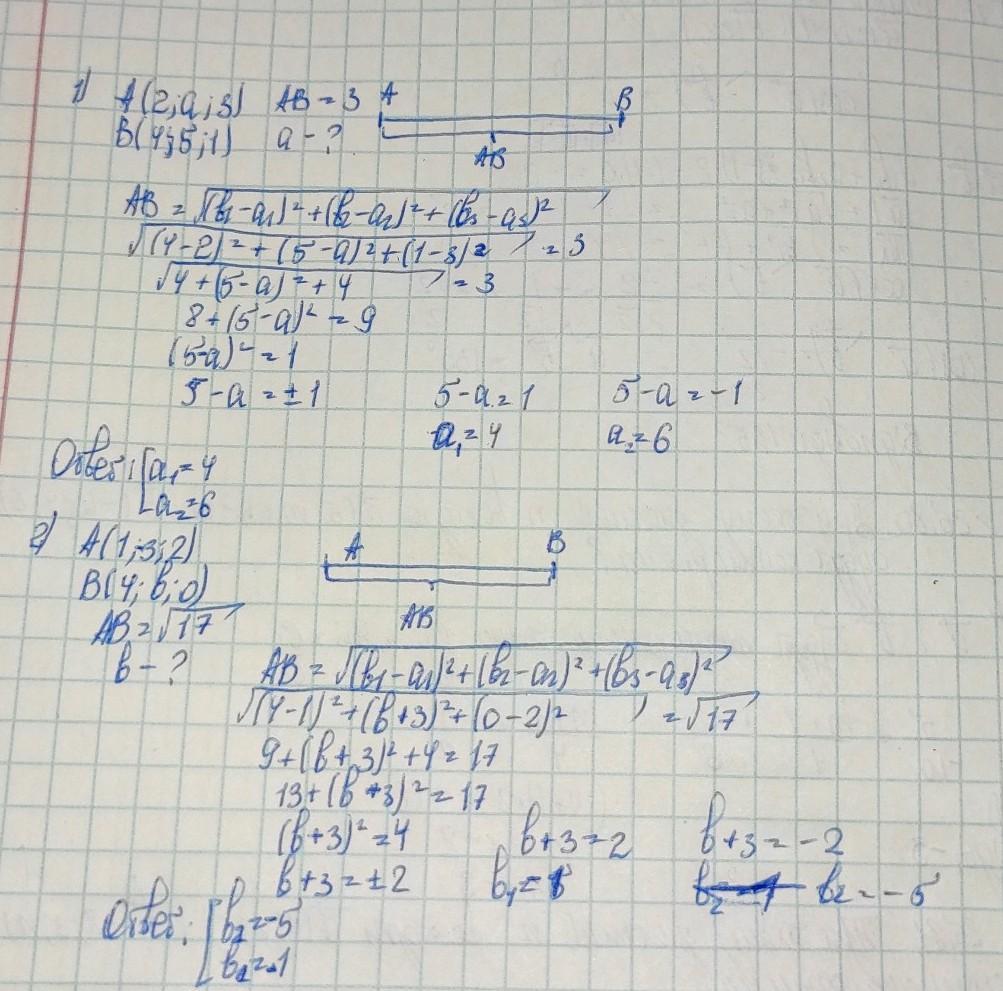 1) A(2;a;3) AB = 3 A B
B(4;5;1) a - ? AB
AB = √(b₁-a₁)²+(b₂-a₂)²+(b₃-a₃)²
√(4-2)²+(5-a)²+(1-3)² = 3
√4+(5-a)²+4 = 3
8+(5-a)² = 9
(5-a)² = 1
5-a = ±1 5-a = 1 5-a = -1
a₁ = 4 a₂ = 6
Ответ: [a₁ = 4
a₂ = 6
2) A(1;-3;2) A B
B(4;b;0)
AB = √17 AB
b - ? AB = √(b₁-a₁)²+(b₂-a₂)²+(b₃-a₃)²
√(4-1)²+(b+3)²+(0-2)² = √17
9+(b+3)²+4 = 17
13+(b+3)² = 17
(b+3)² = 4 b+3 = 2 b+3 = -2
b+3 = ±2 b₂ = -5
Ответ: [b₂ = -5